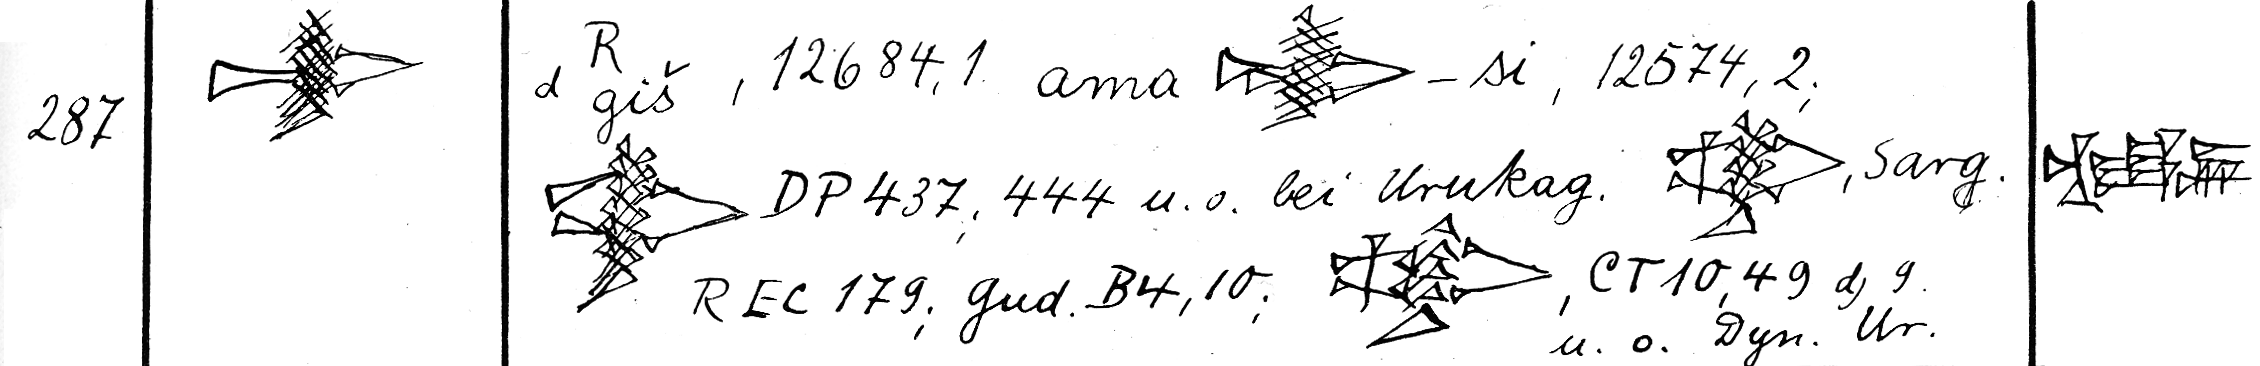 287
d R giš , 12684,1 ama – si , 12574,2;
DP 437, 444 u. o. bei Urukag. , Sarg.
REC 179; Gud. B4,10; , CT 10,49 d, 9.
u. o. Dyn. Ur.